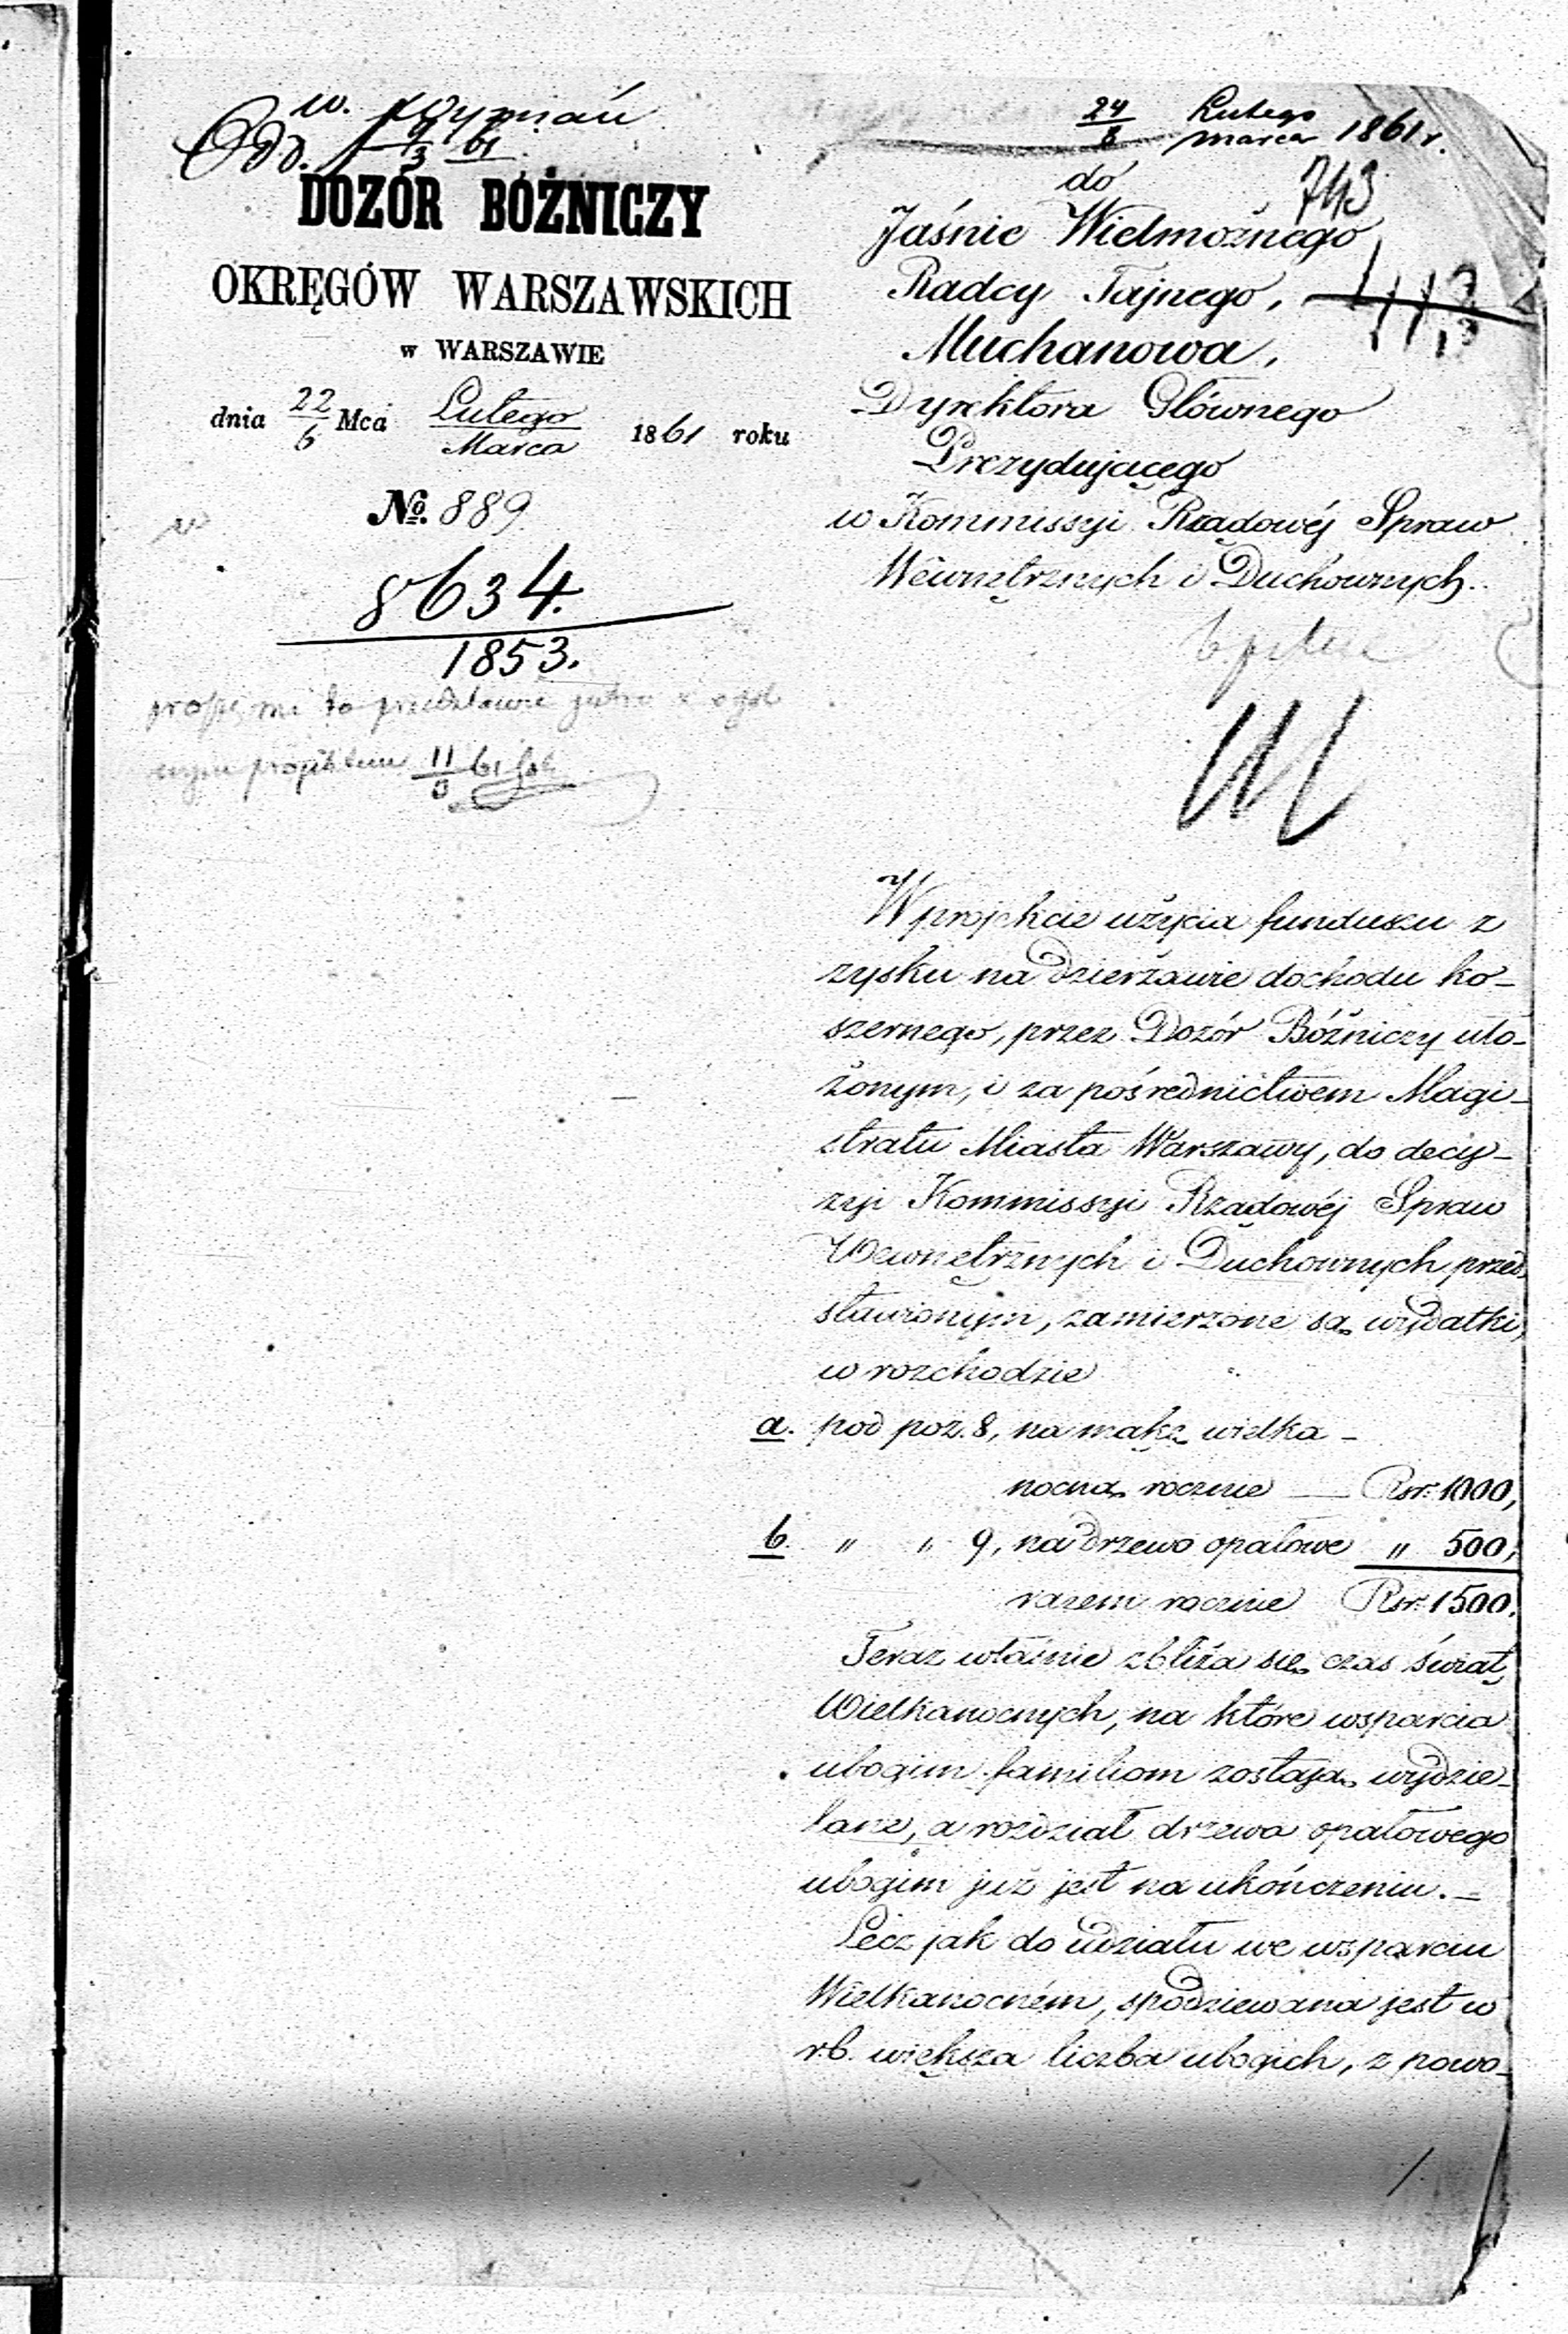 w. Wyznań
Odd. 9/3 61
DOZÓR BÓŻNICZY
OKRĘGÓW WARSZAWSKICH
w WARSZAWIE
dnia 22/6 Mca Lutego/Marca 1861 roku
No. 889
8634.
1853.
proszę mi to przedstawić jutro z
projektem 11/3 61
24/8 Lutego/marca 1861 r.
do
743
Jaśnie Wielmożnego
Radcy Tajnego,
Muchanowa,
Dyrektora Głównego
Prezydującego
w Kommissyi Rządowéj Spraw
Wewnętrznych i Duchownych.
W projekcie użycia funduszu z
zysku na dzierżawie dochodu ko-
szernego, przez Dozór Bóżniczy uło-
żonym, i za pośrednictwem Magi-
stratu Miasta Warszawy, do decy-
zyi Kommissyi Rządowéj Spraw
Wewnętrznych i Duchownych przed-
stawionym, zamierzone są wydatki,
w rozchodzie
a. pod poz. 8, na mąkę wielka-
nocną rocznie — Rsr. 1000,
b. " " 9, na drzewo opałowe " 500,
razem rocznie Rsr. 1500.
Teraz właśnie zbliża się czas świąt
Wielkanocnych, na które wsparcia
ubogim familiom zostają wydzie-
lane, a rozdział drzewa opałowego
ubogim już jest na ukończeniu. —
Lecz jak do udziału we wsparciu
Wielkanocném, spodziewana jest w
r.b. większa liczba ubogich, z powo-